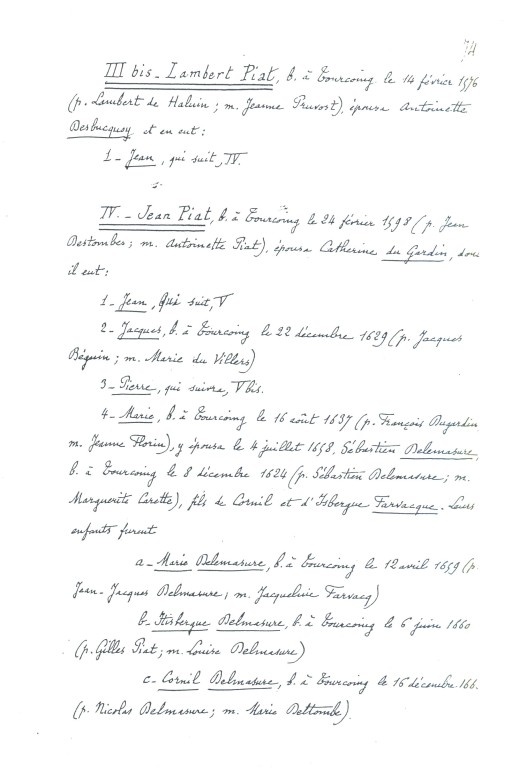 74
III bis - Lambert Piat, b. à Tourcoing le 14 février 1576
(p. Lambert de Haluin ; m. Jeanne Pruvost), épousa Antoinette
Desbucquoy et en eut :
1 - Jean, qui suit, IV.
IV. - Jean Piat, b. à Tourcoing le 24 février 1598 (p. Jean
Destombes ; m. Antoinette Piat), épousa Catherine du Gardin, dont
il eut :
1 - Jean, qui suit, V
2 - Jacques, b. à Tourcoing le 22 décembre 1629 (p. Jacques
Béguin ; m. Marie du Villers)
3 - Pierre, qui suivra, V bis.
4 - Marie, b. à Tourcoing le 16 août 1637 (p. François Dugardin
m. Jeanne Florin), y épousa le 4 juillet 1658, Sébastien Delemasure,
b. à Tourcoing le 8 décembre 1624 (p. Sébastien Delemasure ; m.
Marguerite Carette), fils de Cornil et d'Isbergue Farvacque. Leurs
enfants furent
a - Marie Delemasure, b. à Tourcoing le 12 avril 1659 (p.
Jean-Jacques Delmasure, m. Jacqueline Farvacq)
b - Isbergue Delmasure, b. à Tourcoing le 6 juin 1660
(p. Gilles Piat ; m. Louise Delmasure)
c - Cornil Delmasure, b. à Tourcoing le 16 décembre 166
(p. Nicolas Delmasure ; m. Marie Dettombe).